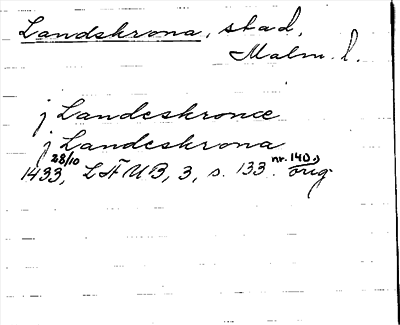 Landskrona, stad,
Malm. l.
j Landeskrone
j Landeskrona
28/10 nr. 140,
1433, LÄUB, 3, s. 133. orig.